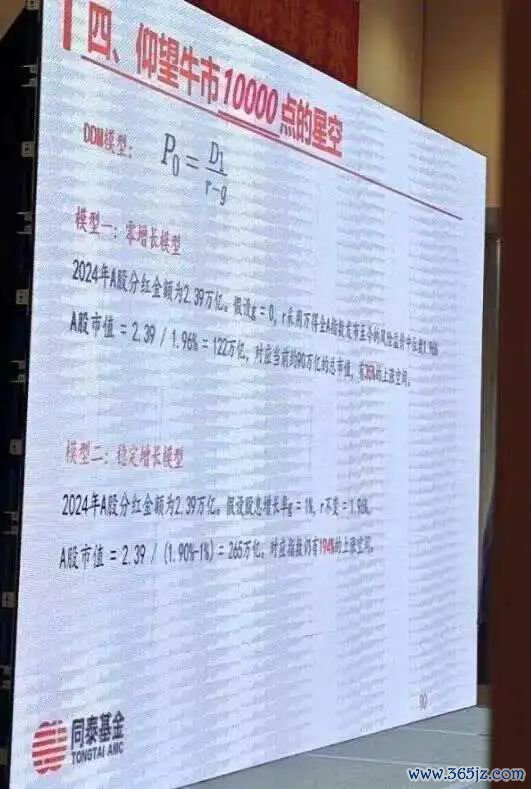 四、仰望牛市10000点的星空
DDM模型: P₀ = D1 / r-g
模型一：零增长模型
2024年A股分红金额为2.39万亿。假设g = 0，r采用万得全A指数发布至今的风险溢价中位数1.96%
A股市值 = 2.39 / 1.96% = 122万亿，对应当前约90万亿的总市值，有35%的上涨空间。
模型二：稳定增长模型
2024年A股分红金额为2.39万亿。假设股息增长率g = 1%，r不变 = 1.96%，
A股市值 = 2.39 / (1.90%-1%) = 265万亿，对应指数仍有194%的上涨空间。
同泰基金
TONGTAI AMC
www.365jz.com